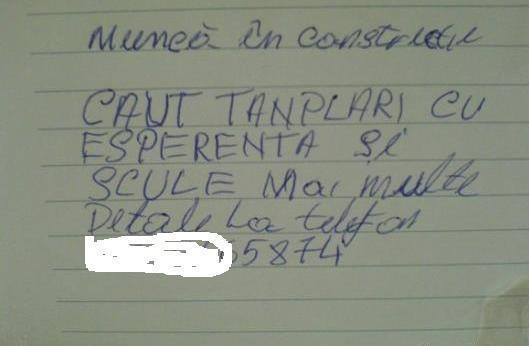 Muncă în construcție
CAUT TANPLARI CU
ESPERENTA și
SCULE Mai multe
Detali La telefon
65874